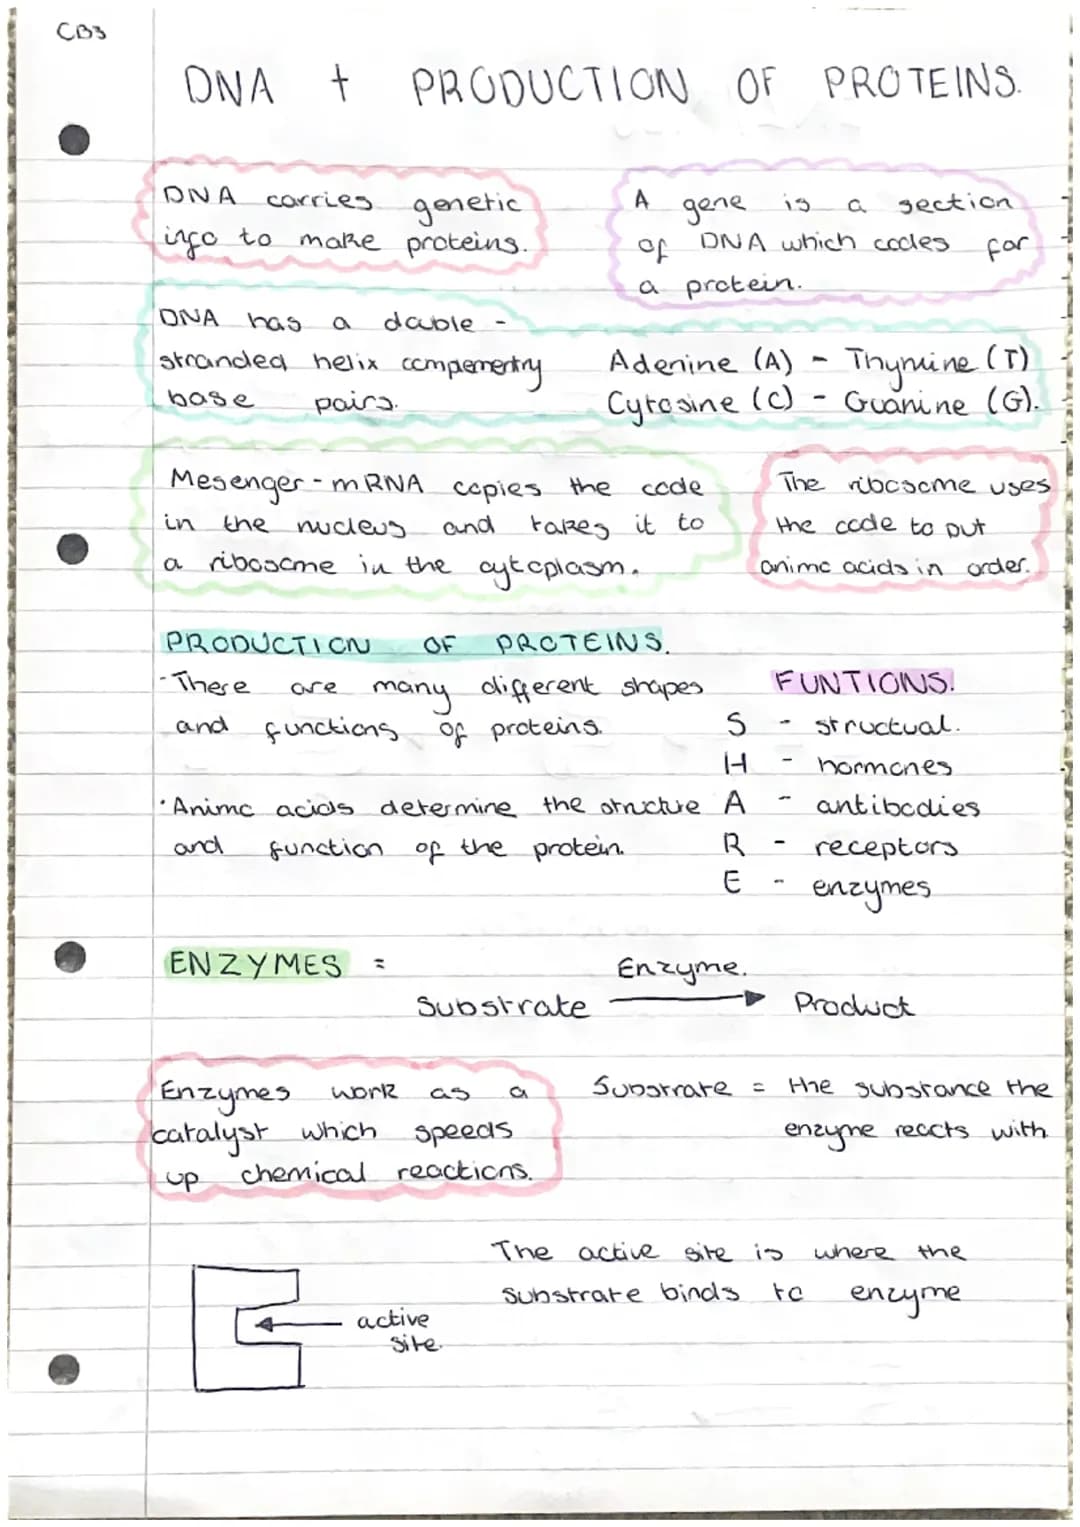 CB3
DNA + PRODUCTION OF PROTEINS.
DNA carries genetic
info to make proteins.
A gene is a section
of DNA which codes for
a protein.
DNA has a double -
stranded helix compementry
base pairs.
Adenine (A) - Thymine (T)
Cytosine (C) - Guanine (G).
Mesenger - mRNA copies the code
in the nucleus and takes it to
a ribosome in the cytoplasm.
The ribosome uses
the code to put
animo acids in order.
PRODUCTION OF PROTEINS.
- There are many different shapes
and functions of proteins.
· Animo acids determine the structure
and function of the protein.
FUNTIONS!
S - structual.
H - hormones
A - antibodies
R - receptors
E - enzymes
ENZYMES =
Enzyme.
Substrate → Product
Enzymes work as a
catalyst which speeds
up chemical reactions.
Substrate = the substance the
enzyme reacts with
The active site is where the
substrate binds to enzyme
active
site.